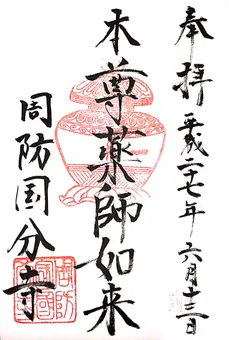 奉拝 平成二十七年 六月十三日
本尊薬師如来
周防国分寺